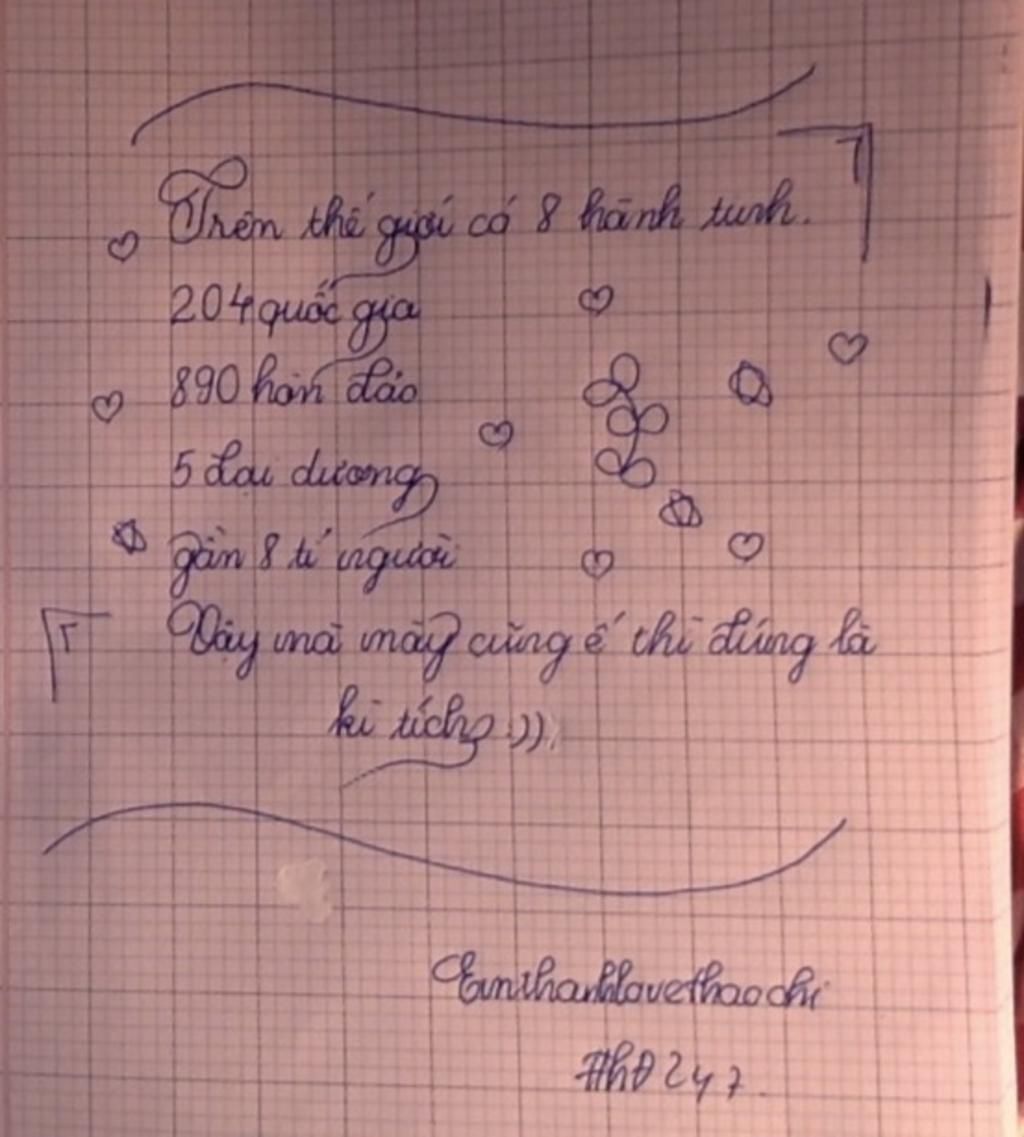 Trên thế giới có 8 hành tinh.
204 quốc gia
890 hòn đảo
5 đại dương
gần 8 tỉ người
Vậy mà mày cũng ế thì đúng là
kì tích :)))
Emthanhlovethaochi
#hđ247